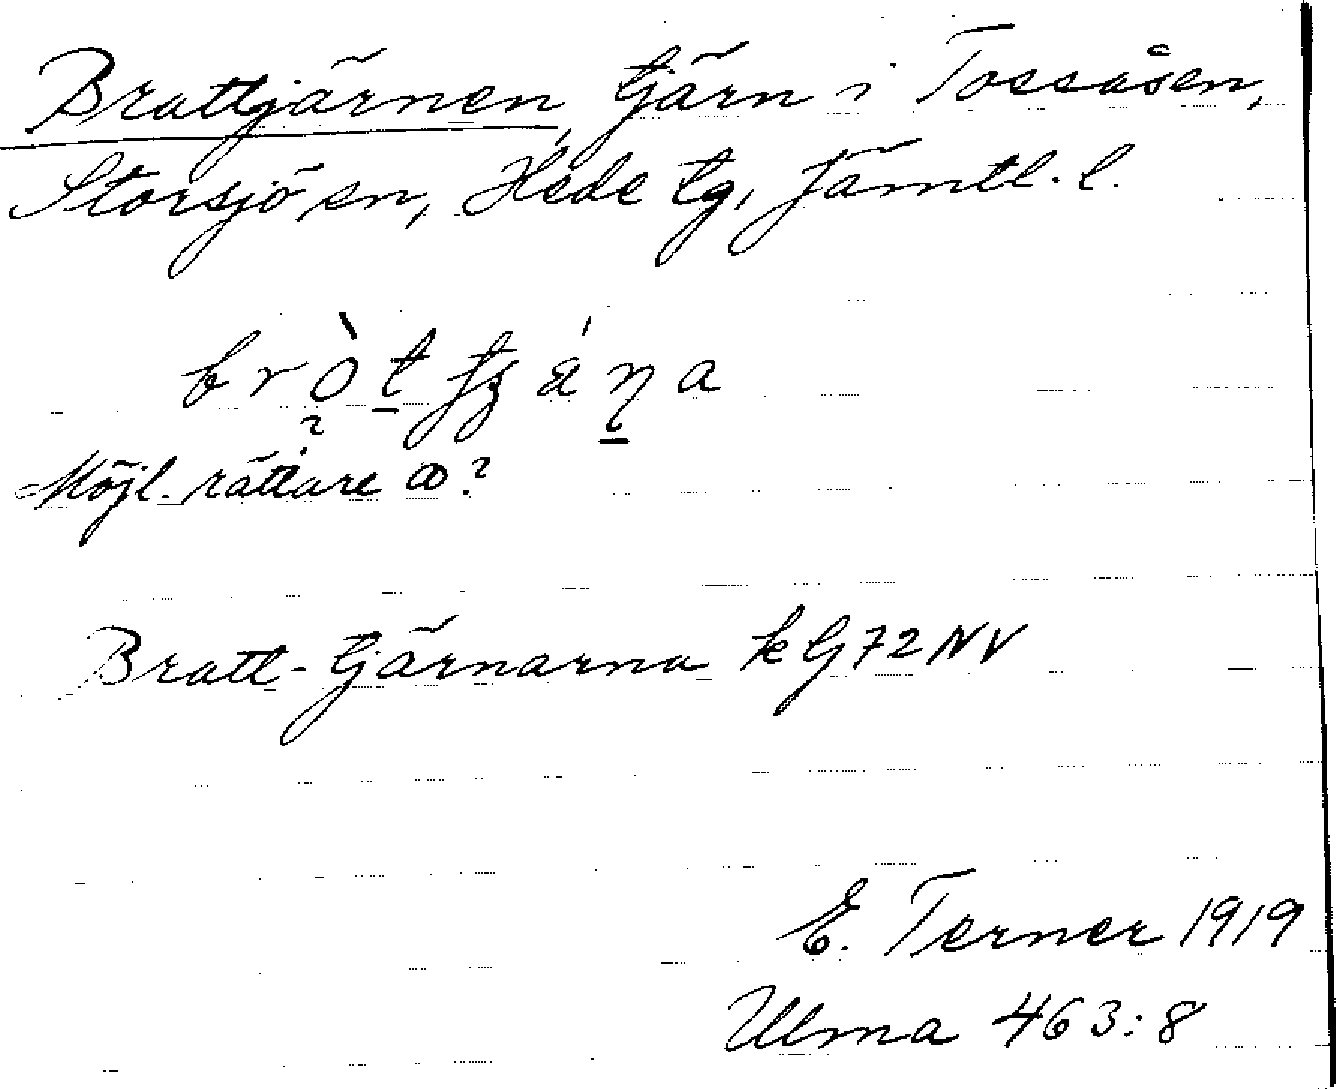 Brattjärnen, tjärn i Tossåsen,
Storsjö sn, Hede tg, Jämtl. l.
Möjl. rättare ꝏ?
Bratt-tjärnarna kG72NV
E. Terner 1919
Ulma 463:8